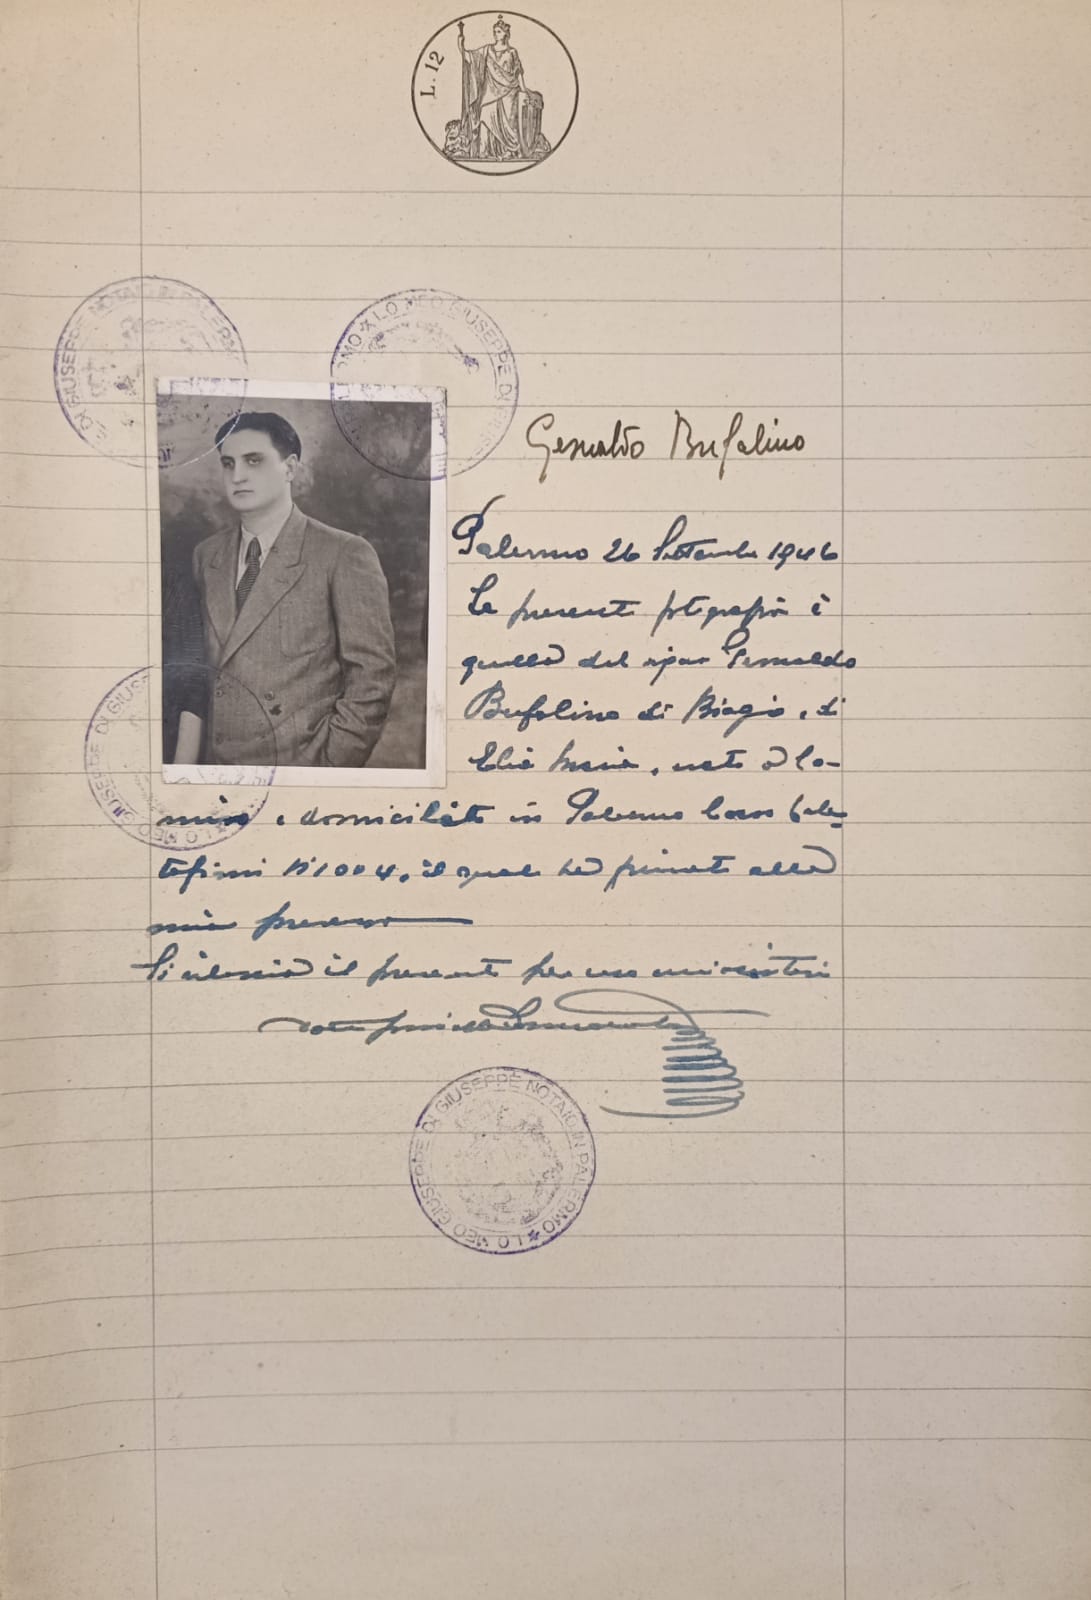 L. 12
DI GIUSEPPE NOTAIO IN PALERMO
LO MEO GIUSEPPE DI GIUSE
Gesualdo Bufalino
Palermo 26 Settembre 1946
La presente fotografia è
quella del sigor Gesualdo
Bufalino di Biagio, di
Elia Maria, nato a Co-
miso e domiciliato in Palermo Corso Cala-
tafimi N° 1004, il quale ha firmato alla
mia presenza
Si rilascia il presente per uso universitario
LO MEO GIUSEPPE DI GIUSE
LO MEO GIUSEPPE DI GIUSEPPE NOTAIO IN PALERMO